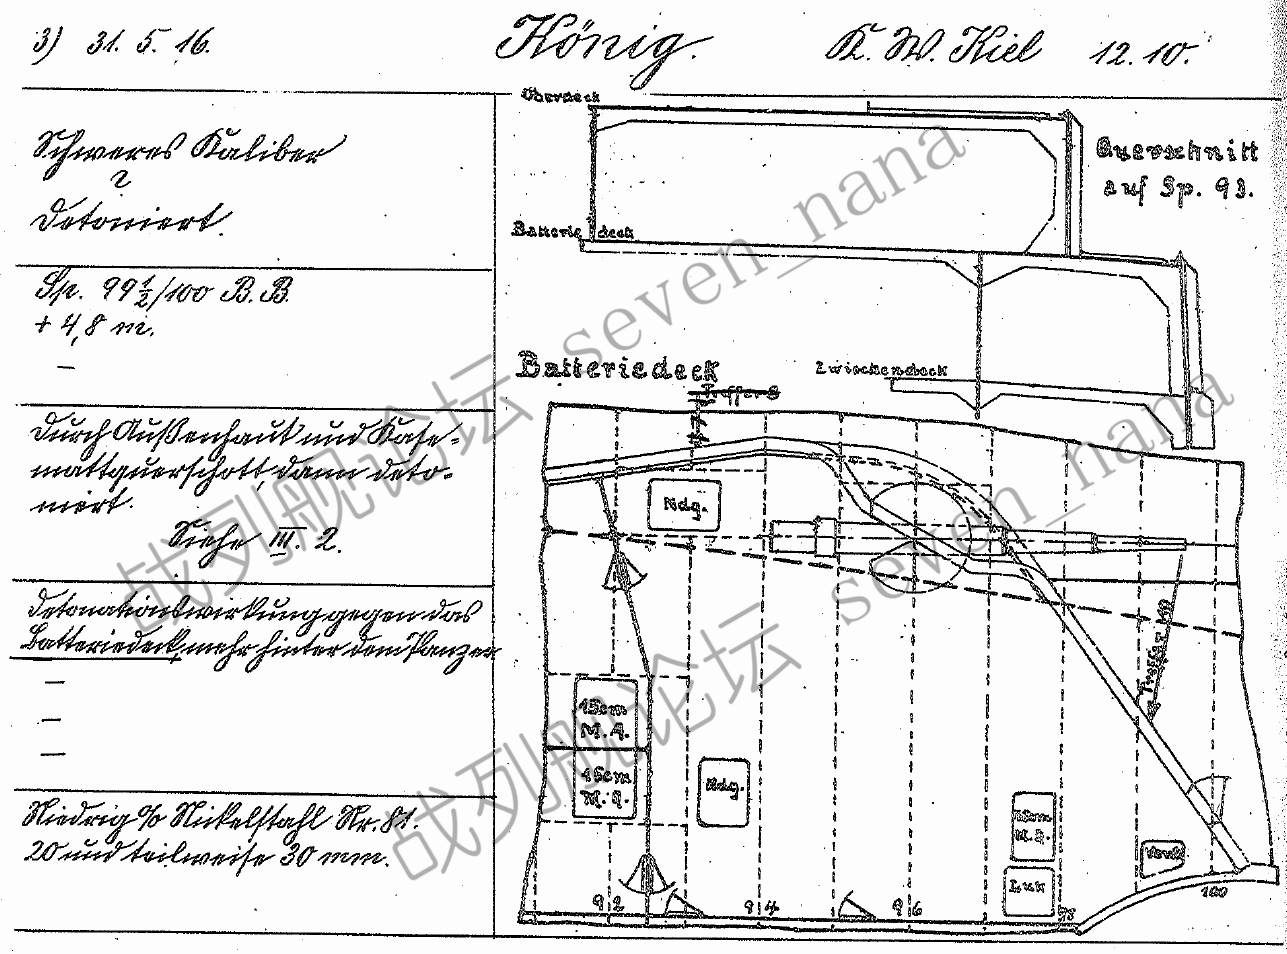 3) 31. 5. 16. König. K. W. Kiel 12. 10.
Schweres Kaliber
?
Detoniert.
Sp. 99½/100 B. B.
+ 4,8 m.
—
Durch Außenhaut und Kase-
mattquerschott, dann deto-
niert.
Siehe III. 2.
Detonationswirkung gegen das
Batteriedeck, mehr hinter dem Panzer
—
—
—
Niedrig % Nickelstahl Nr. 81.
20 und teilweise 30 mm.
Oberdeck
Querschnitt
auf Sp. 93.
Batteriedeck
Zwischendeck
Batteriedeck
Treffer 8
Ndg.
15cm
M.A.
15cm
M.A.
Ndg.
Luk
92
94
96
98
100
战列舰论坛 seven_nana
战列舰论坛 seven_nana